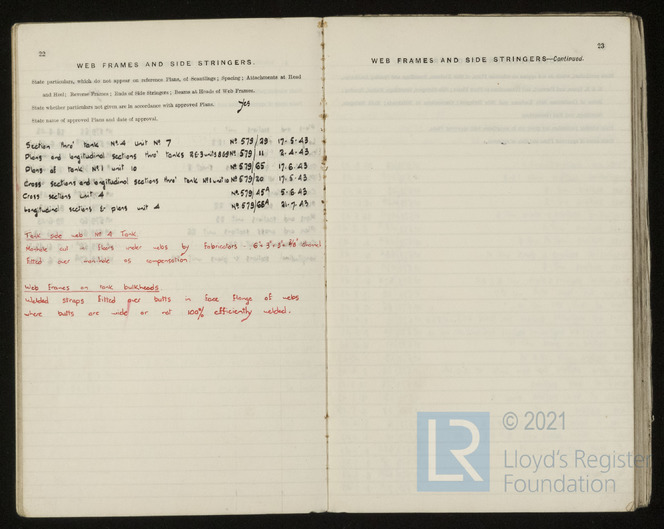 22
WEB FRAMES AND SIDE STRINGERS.
State particulars, which do not appear on reference Plans, of Scantlings; Spacing; Attachments at Head
and Heel; Reverse Frames; Ends of Side Stringers; Beams at Heads of Web Frames.
State whether particulars not given are in accordance with approved Plans. Yes
State name of approved Plans and date of approval.
Section thro' tank Nº 4 unit Nº 7 Nº 579/29 17.5.43
Plans and longitudinal sections thro' tanks 2 & 3 units 8 & 9 Nº 579/11 2.4.43
Plans of tank Nº 1 unit 10 Nº 579/65 17.6.43
Cross sections and longitudinal sections thro' tank Nº 1 unit 10 Nº 579/20 17.5.43
Cross sections unit 4 Nº 579/45ᴬ 5.6.43
Longitudinal sections & plans unit 4 Nº 579/66ᴬ 21.7.43
Tank side web Nº 4 Tank
Manhole cut in floors under webs by Fabricators - channel
fitted over manhole as compensation
Web frames on tank bulkheads
Welded straps fitted over butts in face flange of webs
where butts are wide or not 100% efficiently welded.
23
WEB FRAMES AND SIDE STRINGERS—Continued.
LR
© 2021
Lloyd's Register
Foundation